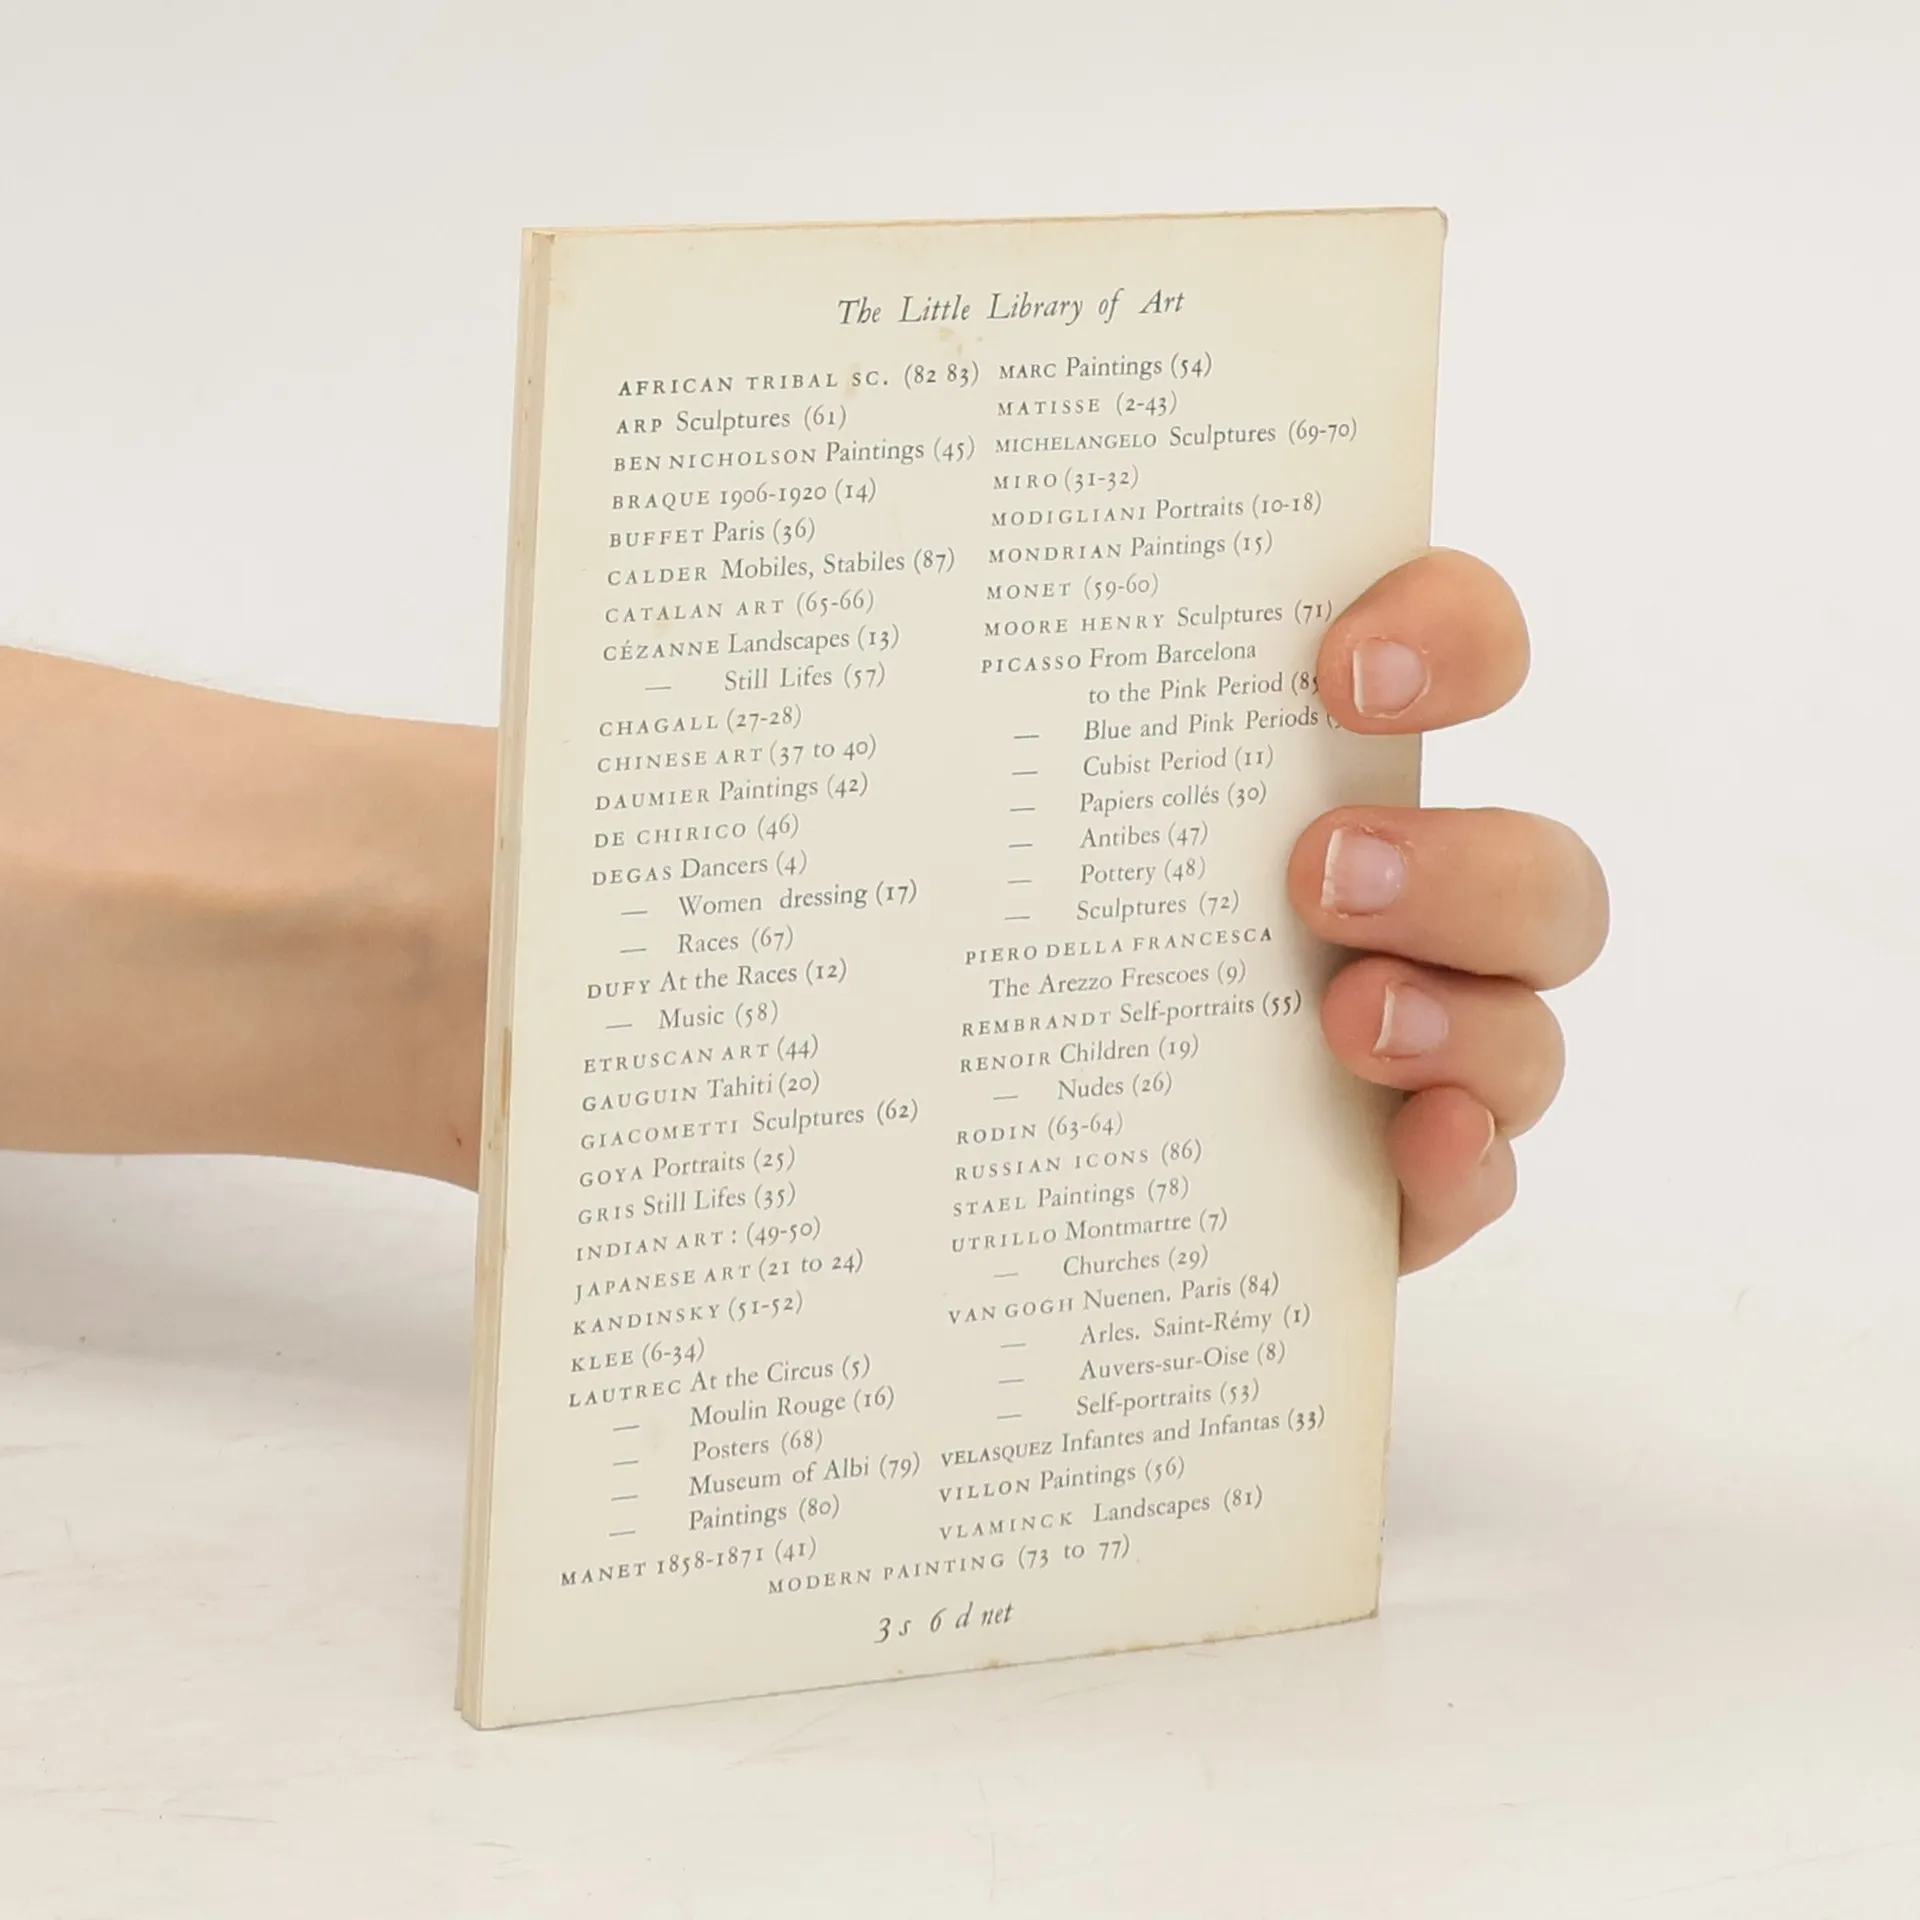 The Little Library of Art
AFRICAN TRIBAL SC. (82 83)
ARP Sculptures (61)
BEN NICHOLSON Paintings (45)
BRAQUE 1906-1920 (14)
BUFFET Paris (36)
CALDER Mobiles, Stabiles (87)
CATALAN ART (65-66)
CÉZANNE Landscapes (13)
— Still Lifes (57)
CHAGALL (27-28)
CHINESE ART (37 to 40)
DAUMIER Paintings (42)
DE CHIRICO (46)
DEGAS Dancers (4)
— Women dressing (17)
— Races (67)
DUFY At the Races (12)
— Music (58)
ETRUSCAN ART (44)
GAUGUIN Tahiti (20)
GIACOMETTI Sculptures (62)
GOYA Portraits (25)
GRIS Still Lifes (35)
INDIAN ART : (49-50)
JAPANESE ART (21 to 24)
KANDINSKY (51-52)
KLEE (6-34)
LAUTREC At the Circus (5)
— Moulin Rouge (16)
— Posters (68)
— Museum of Albi (79)
— Paintings (80)
MANET 1858-1871 (41)
MARC Paintings (54)
MATISSE (2-43)
MICHELANGELO Sculptures (69-70)
MIRO (31-32)
MODIGLIANI Portraits (10-18)
MONDRIAN Paintings (15)
MONET (59-60)
MOORE HENRY Sculptures (71)
PICASSO From Barcelona
to the Pink Period
— Blue and Pink Periods
— Cubist Period (11)
— Papiers collés (30)
— Antibes (47)
— Pottery (48)
— Sculptures (72)
PIERO DELLA FRANCESCA
The Arezzo Frescoes (9)
REMBRANDT Self-portraits (55)
RENOIR Children (19)
— Nudes (26)
RODIN (63-64)
RUSSIAN ICONS (86)
STAEL Paintings (78)
UTRILLO Montmartre (7)
— Churches (29)
VAN GOGH Nuenen. Paris (84)
— Arles. Saint-Rémy (1)
— Auvers-sur-Oise (8)
— Self-portraits (53)
VELASQUEZ Infantes and Infantas (33)
VILLON Paintings (56)
VLAMINCK Landscapes (81)
MODERN PAINTING (73 to 77)
3 s 6 d net